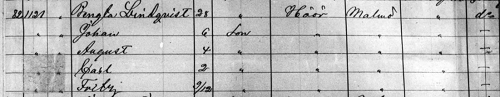 28 1121 " Bengta Lindkvist 28 " Höör Malmö " do
" " Johan 6 Son " " "
" " August 4 " " " "
" " Carl 2 " " " "
" " 9/12 " " " "